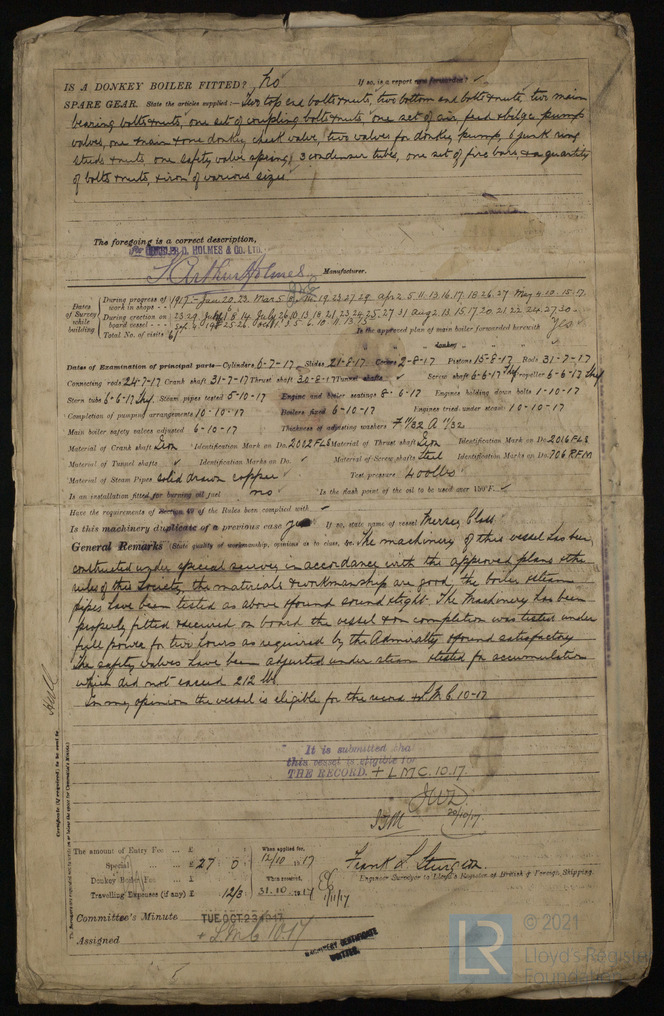 IS A DONKEY BOILER FITTED? No If so, is a report now forwarded? ✓
SPARE GEAR. State the articles supplied:— Two top end bolts & nuts, two bottom end bolts & nuts, two main
bearing bolts & nuts, one set of coupling bolts & nuts one set of air feed & bilge pump
valves, one main & one donkey check valve, two valves for donkey pump, 6 junk ring
studs & nuts, one safety valve spring, 3 condenser tubes, one set of fire bars & a quantity
of bolts & nuts, & iron of various sizes
The foregoing is a correct description,
D. HOLMES & Co. LTD.
Arthur Holmes Manufacturer.
Dates of Survey while building
During progress of work in shops - - 1917. Jan 20. 23. Mar 5. 19. 23. 27. 29. Apr 2. 5. 11. 13. 16. 17. 18. 26. 27. May 4. 10. 15. 17.
During erection on board vessel - - - 23. 29. July 26. 27. 31 Aug 2. 13. 15. 17. 20. 21. 22. 24. 27. 30.
Total No. of visits 67 Is the approved plan of main boiler forwarded herewith Yes
" " " donkey " " "
Dates of Examination of principal parts—Cylinders 6-7-17 Slides 21-8-17 Covers 2-8-17 Pistons 15-8-17 Rods 31-7-17
Connecting rods 24-7-17 Crank shaft 31-7-17 Thrust shaft 30-8-17 Tunnel shafts ✓ Screw shaft 6-6-17 Propeller 6-6-17
Stern tube 6-6-17 Steam pipes tested 5-10-17 Engine and boiler seatings 8-6-17 Engines holding down bolts 1-10-17
Completion of pumping arrangements 10-10-17 Boilers fixed 6-10-17 Engines tried under steam 10-10-17
Main boiler safety valves adjusted 6-10-17 Thickness of adjusting washers F 11/32 A 11/32
Material of Crank shaft Iron Identification Mark on Do. 2002 FLS Material of Thrust shaft Iron Identification Mark on Do. 2016 FLS
Material of Tunnel shafts ✓ Identification Marks on Do. ✓ Material of Screw shafts Steel Identification Marks on Do. 706 RFM
Material of Steam Pipes solid drawn copper Test pressure 400 lbs
Is an installation fitted for burning oil fuel no Is the flash point of the oil to be used over 150°F. ✓
Have the requirements of Section 49 of the Rules been complied with ✓
Is this machinery duplicate of a previous case yes If so, state name of vessel Mersey Class
General Remarks (State quality of workmanship, opinions as to class, &c. The machinery of this vessel has been
constructed under special survey in accordance with the approved plans & the
rules of this Society, the materials & workmanship are good, the boiler & steam
pipes have been tested as above & found sound & tight. The Machinery has been
properly fitted & secured on board the vessel & on completion was tested under
full power for two hours as required by the Admiralty & found satisfactory
The safety valves have been adjusted under steam & tested for accumulation
which did not exceed 212 lbs
In my opinion the vessel is eligible for the record + L.M.C. 10-17
Hull
It is submitted tha
this vessel is eligible for
THE RECORD. + LMC. 10.17.
JWD
20/10/17
The amount of Entry Fee ... £ When applied for,
Special ... £ 27 : 0 12/10 1917
Donkey Boiler Fee ... £ When received,
Travelling Expenses (if any) £ 12/3 31.10.1917 1/11/17
Frank L Sturgeon
Engineer Surveyor to Lloyd's Register of British & Foreign Shipping.
Committee's Minute TUE. OCT 23 1917
Assigned + LMC 10.17
MACHINERY CERTIFICATE
WRITTEN.
LR © 2021
Lloyd's Register
Foundation